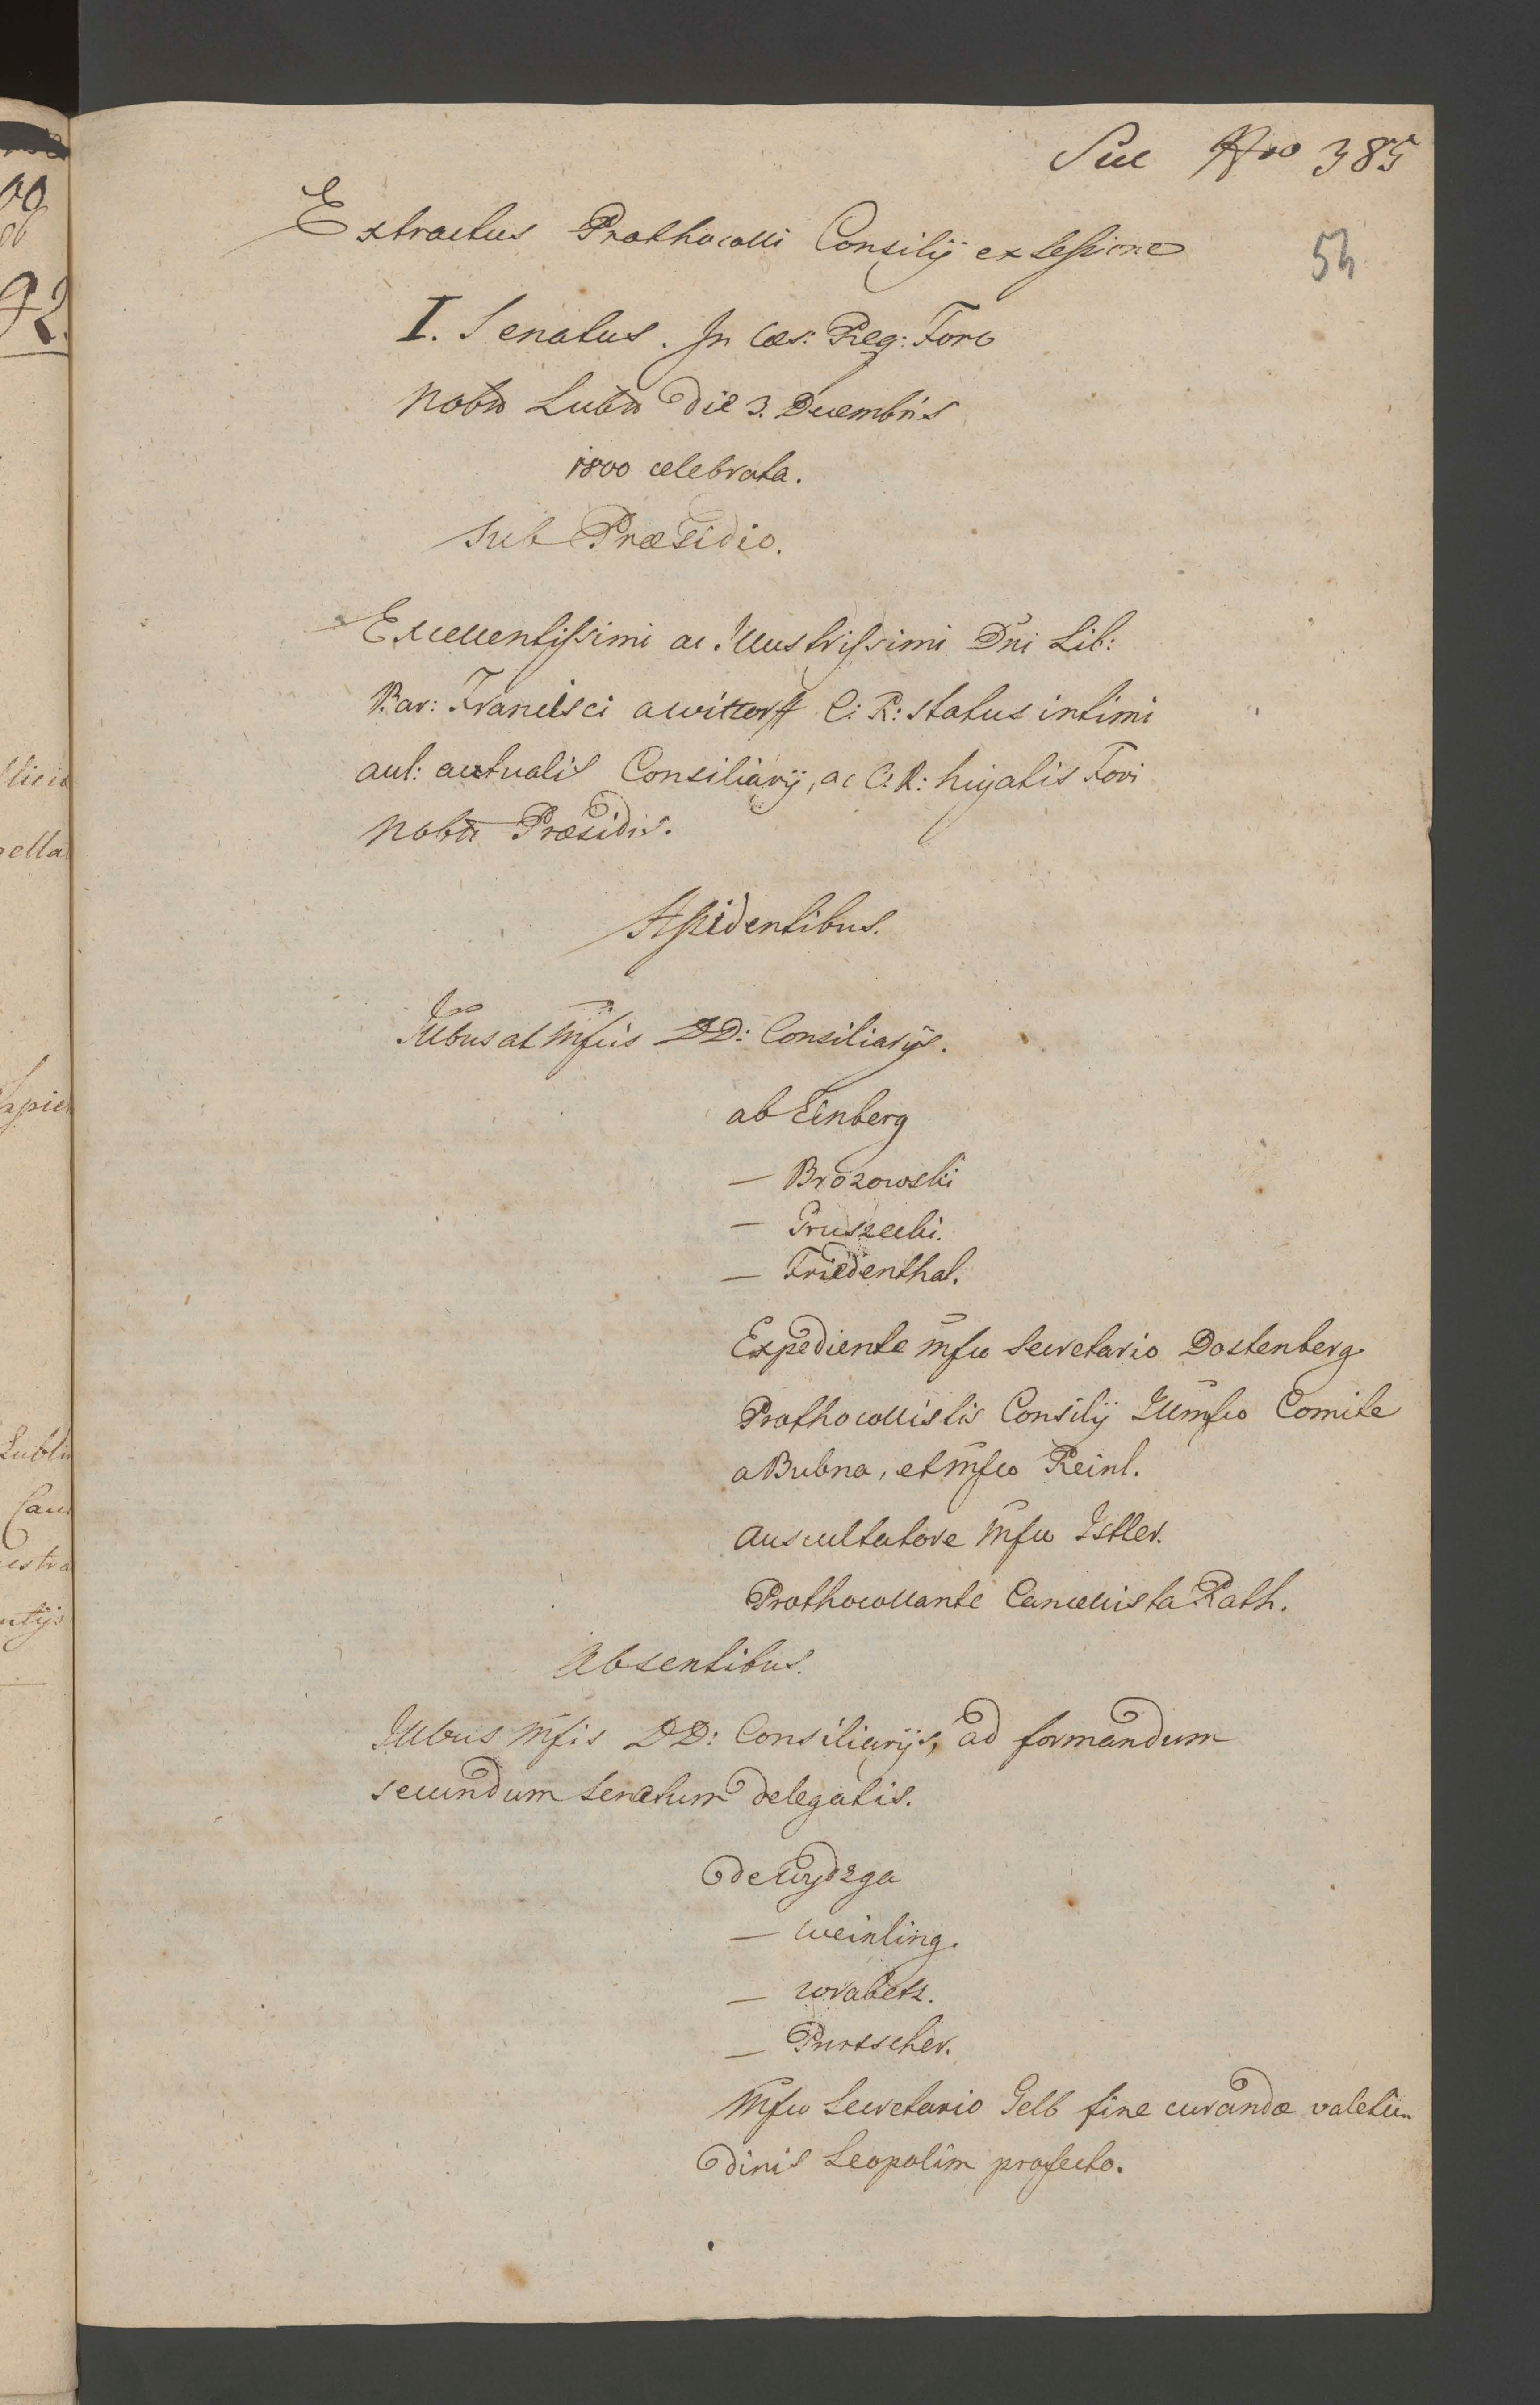 Nro 385
54
Extractus Prothocolli Consilij ex Sessione
I. Senatus. In Cæs: Reg: Foro
Nobio Lubio die 3. Decembris
1800 celebrata.
Sub Præsidio.
Excellentissimi ac Illustrissimi Dni Lib:
Bar: Francisci a Wittorff C: R: status intimi
aul: actualis Consiliarij, ac C: R: hujatis Fori
Præsidis.
Assidentibus.
Illbus ac Mfcis DD: Consiliarijs.
ab Einberg
— Brozowski
— Gruszecki.
— Friedenthal.
Expediente Mfco Secretario Dostenberg
Prothocollistis Consilij Illmfco Comite
a Bubna, et Mfco Reinl.
Auscultatore Mfco Istler.
Prothocollante Cancellista Rath.
Absentibus.
Illbus Mfis DD: Consiliarijs, ad formandum
secundum Senatum delegatis.
de Wydzga
— Weinling.
— Wrabetz.
— Purtscher.
Mfco Secretario Gelb fine curandæ valetu-
dinis Leopolim profecto.
ella
Lubli
estra